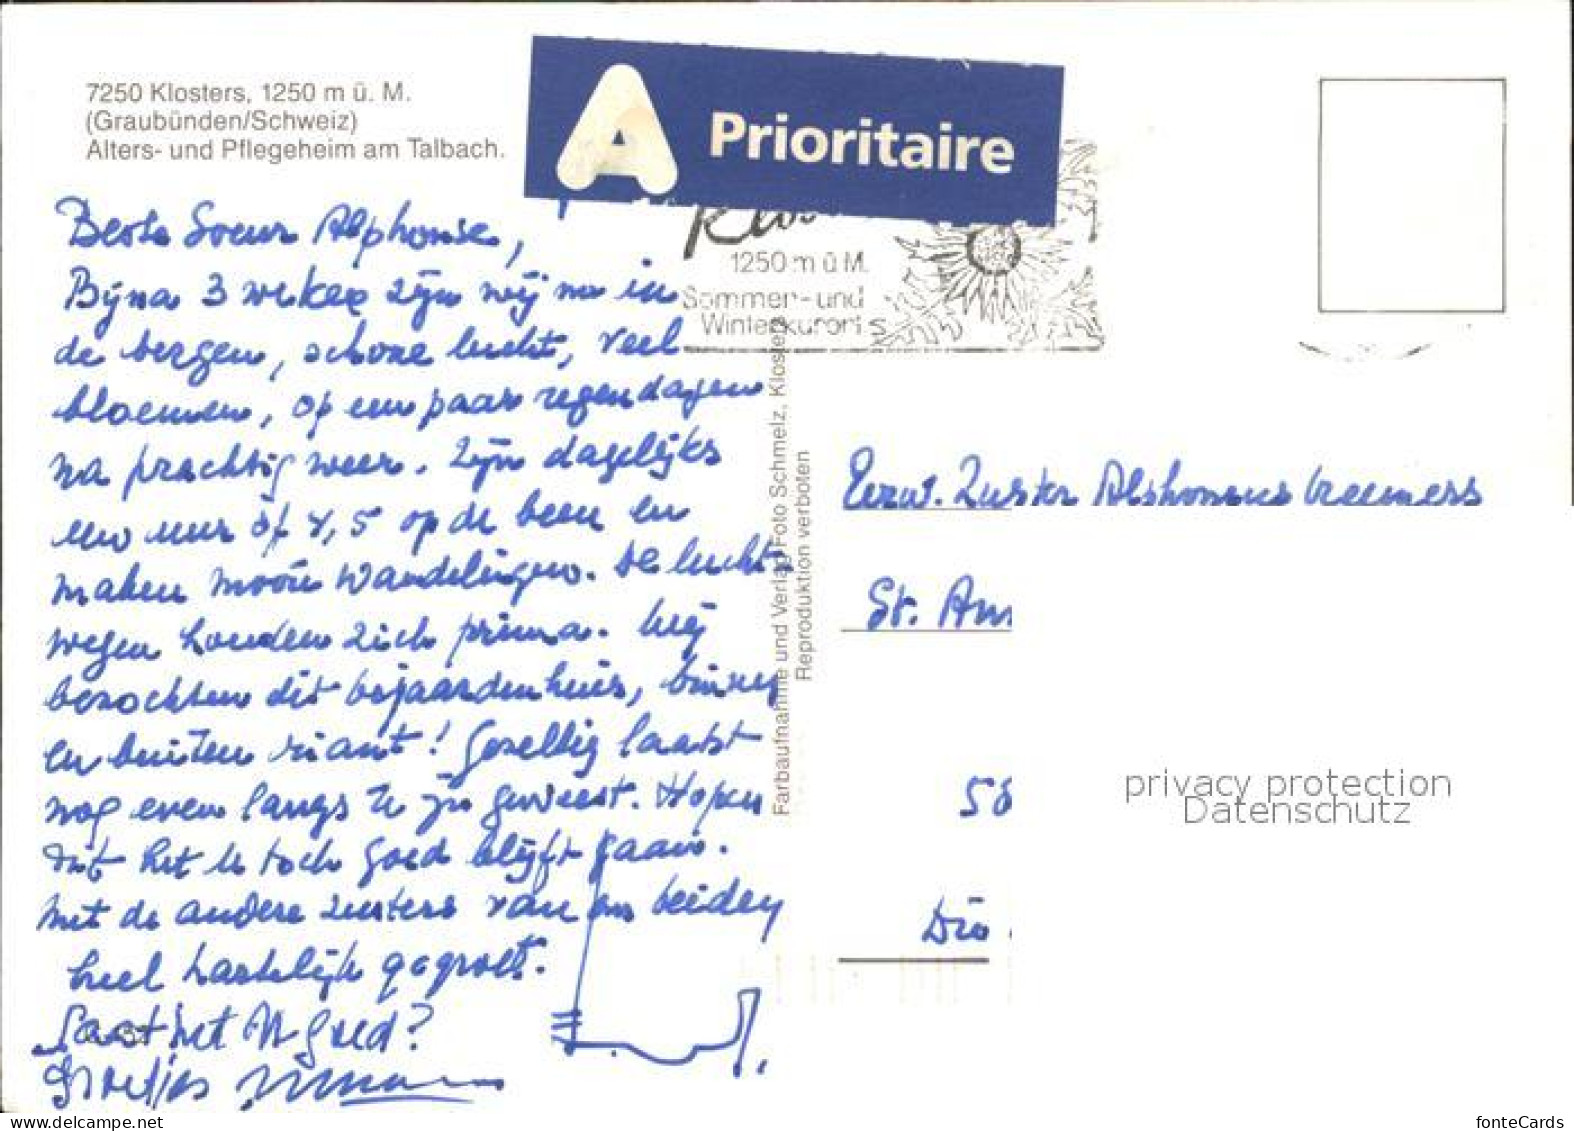 7250 Klosters, 1250 m ü. M.
(Graubünden/Schweiz)
Alters- und Pflegeheim am Talbach.
A Prioritaire
1250 m ü M.
Sommer- und
Winterkurort
Beste Soeur Alphonse,
Bijna 3 weken zijn wij nu in
de bergen, schone lucht, veel
bloemen, op een paar regendagen
na prachtig weer. Zijn dagelijks
een uur of 4, 5 op de been en
maken mooie wandelingen. De lucht-
wegen houden zich prima. Wij
bezochten dit bejaardenhuis, binnen
en buiten riant! Gezellig laatst
nog even langs te zijn geweest. Hopen
dat het U toch goed blijft gaan.
Met de andere zusters van ons beiden
heel hartelijk gegroet.
Gaat het U goed?
Groetjes
Farbaufnahme und Verlag Foto Schmelz, Klosters
Reproduktion verboten
Eerw. Zuster Alphonsus
St. An
58
Die
privacy protection
Datenschutz
www.delcampe.net
fonteCards